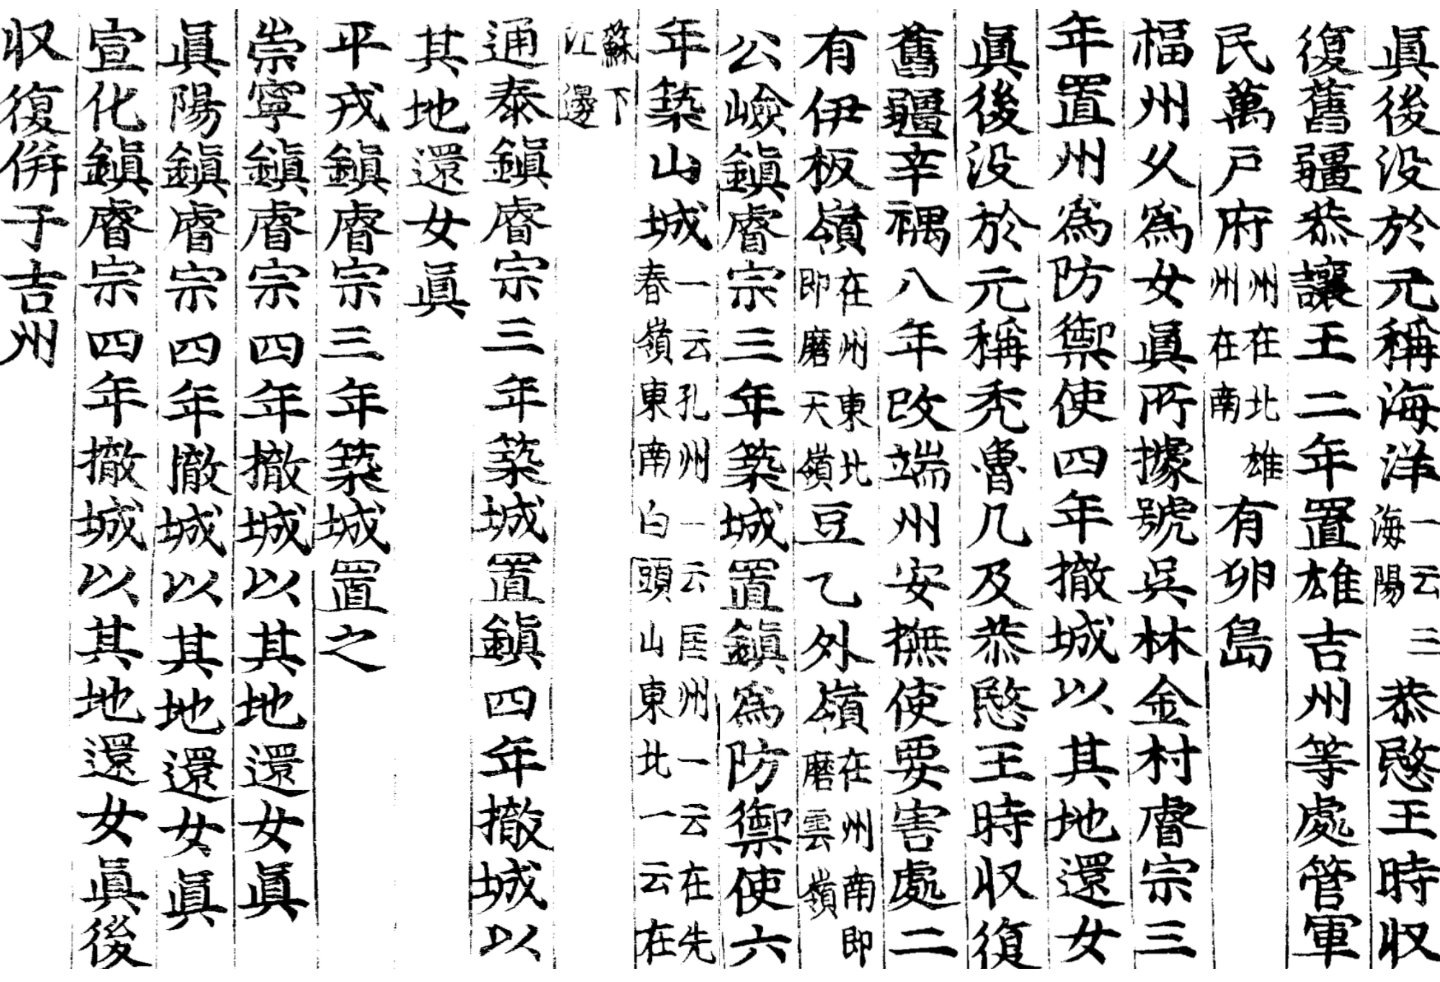 眞後没於元稱海洋一云三海陽恭愍王時収
復舊疆恭讓王二年置雄吉州等處管軍
民萬戸府州在北雄州在南有卵島
福州乆爲女眞所據號吳林金村睿宗三
年置州爲防禦使四年撤城以其地還女
眞後没於元稱禿魯几及恭愍王時収復
舊疆辛禑八年改端州安撫使要害處二
有伊板嶺在州東北即磨天嶺豆乙外嶺在州南即磨雲嶺
公嶮鎭睿宗三年築城置鎭爲防禦使六
年築山城一云孔州一云匡州一云在先春嶺東南白頭山東北一云在
蘇下江邊
通泰鎭睿宗三年築城置鎭四年撤城以
其地還女眞
平戎鎭睿宗三年築城置之
崇寧鎭睿宗四年撤城以其地還女眞
眞陽鎭睿宗四年撤城以其地還女眞
宣化鎭睿宗四年撤城以其地還女眞後
収復併于吉州